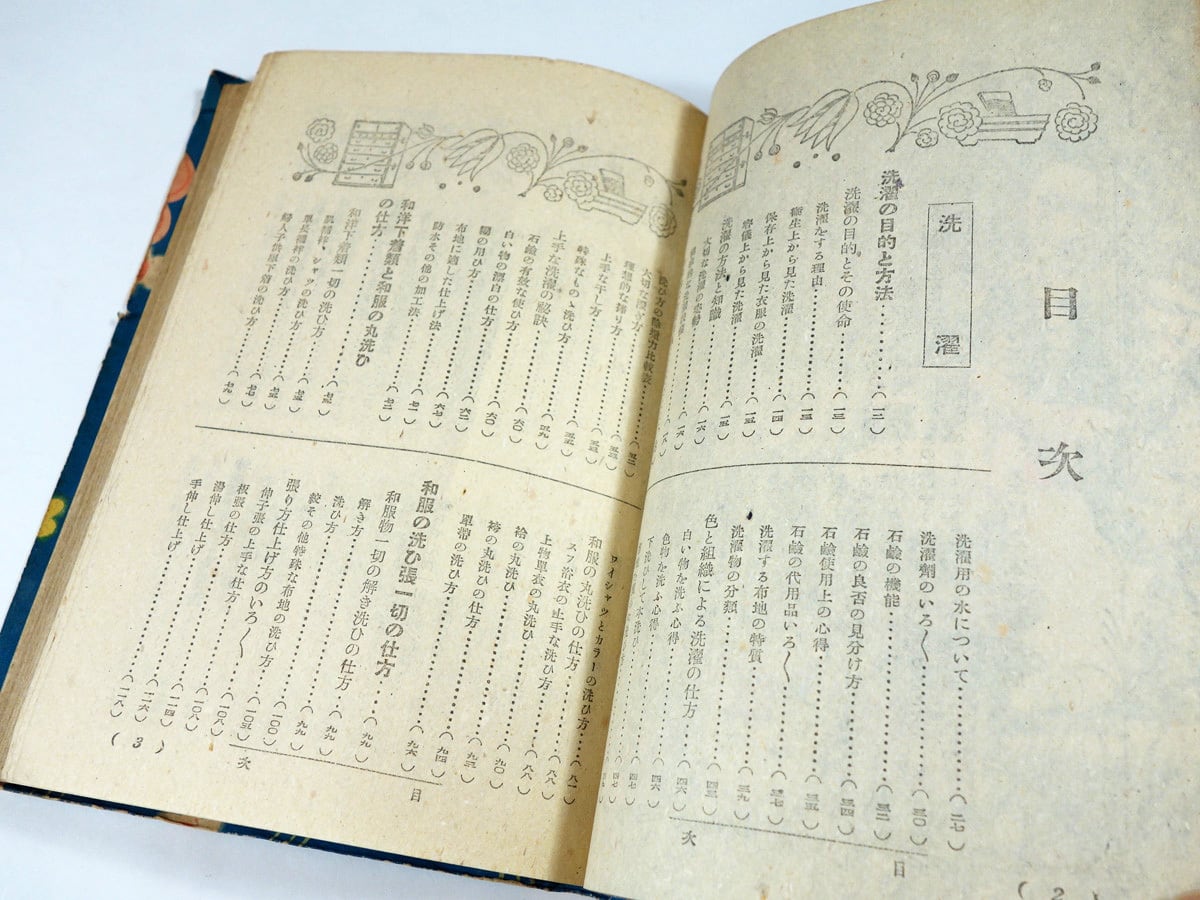 目次
洗濯
洗濯の目的と方法……(一二)
洗濯の目的とその使命……(一三)
洗濯をする理由……(一三)
衞生上から見た洗濯……(一四)
保存上から見た衣服の洗濯……(一五)
容儀上から見た洗濯……(一五)
洗濯の方法と知識……(一五)
大切な洗濯の……(一六)
洗濯用の水について……(二七)
洗濯劑のいろ〱……(三〇)
石鹼の機能……(三二)
石鹼の良否の見分け方……(三四)
石鹼使用上の心得……(三五)
石鹼の代用品いろ〱……(三七)
洗濯する布地の特質……(三九)
洗濯物の分類
色と組織による洗濯の仕方……(四三)
白い物を洗ふ心得……(四六)
色物を洗ふ心得……(四六)
下洗ひして本洗ひ……(四七)
目次
(2)
洗ひ方の物理力比較表……(五二)
大切な濯ぎ方
理想的な絞り方……(五三)
上手な干し方……(五三)
特殊なもの〻洗ひ方……(五五)
上手な洗濯の祕訣
石鹼の有效な使ひ方……(五九)
白い物の漂白の仕方……(六〇)
糊の用ひ方……(六〇)
布地に適した仕上げ法……(六二)
防水その他の加工法……(六七)
和洋下着類と和服の丸洗ひの仕方……(七二)
和洋下着類一切の洗ひ方
肌襦袢、シャツの洗ひ方
單長襦袢の洗ひ方
婦人子供用下着の洗ひ方……(七九)
ワイシャツとカラーの洗ひ方……(八一)
和服の丸洗ひの仕方
スフ浴衣の上手な洗ひ方……(八八)
上物單衣の丸洗ひ……(八八)
袷の丸洗ひ……(九〇)
袴の丸洗ひの仕方……(九三)
單帶の洗ひ方……(九四)
和服の洗ひ張一切の仕方……(九六)
和服物一切の解き洗ひの仕方……(九九)
解き方……(九九)
洗ひ方……(九九)
絞その他特殊な布地の洗ひ方……(一〇〇)
張り方仕上げ方のいろ〱……(一〇五)
伸子張の上手な仕方……(一〇八)
板張の仕方……(一〇八)
湯伸し仕上げ
手伸し仕上げ……(一一八)
目次
(3)